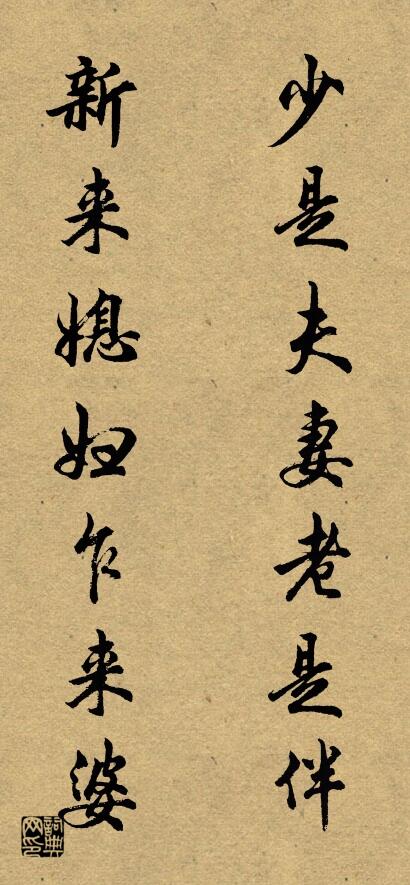 少是夫妻老是伴
新来媳妇乍来婆
詞典网印